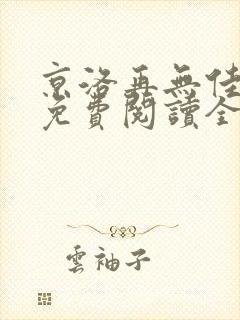 京洛再無佳
免費閱讀全
雲袖子